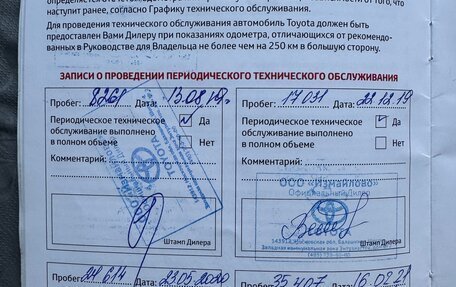 наступит ранее, согласно Графику технического обслуживания.
Для проведения технического обслуживания автомобиль Toyota должен быть
предоставлен Вами Дилеру при показаниях одометра, отличающихся от рекомендо-
ванных в Руководстве для Владельца не более чем на 250 км в большую сторону.
ЗАПИСИ О ПРОВЕДЕНИИ ПЕРИОДИЧЕСКОГО ТЕХНИЧЕСКОГО ОБСЛУЖИВАНИЯ
Пробег: 8261 Дата: 13.08.19г
Периодическое техническое
обслуживание выполнено
в полном объеме
Да
Нет
Комментарий:
TOYOTA
Штамп Дилера
Пробег: 17031 Дата: 22.12.19
Периодическое техническое
обслуживание выполнено
в полном объеме
Да
Нет
Комментарий:
ООО «Измайлово»
Официальный Дилер
Штамп Дилера
Пробег: 24614 Дата: 23.05.2020
Пробег: 35407 Дата: 16.02.21